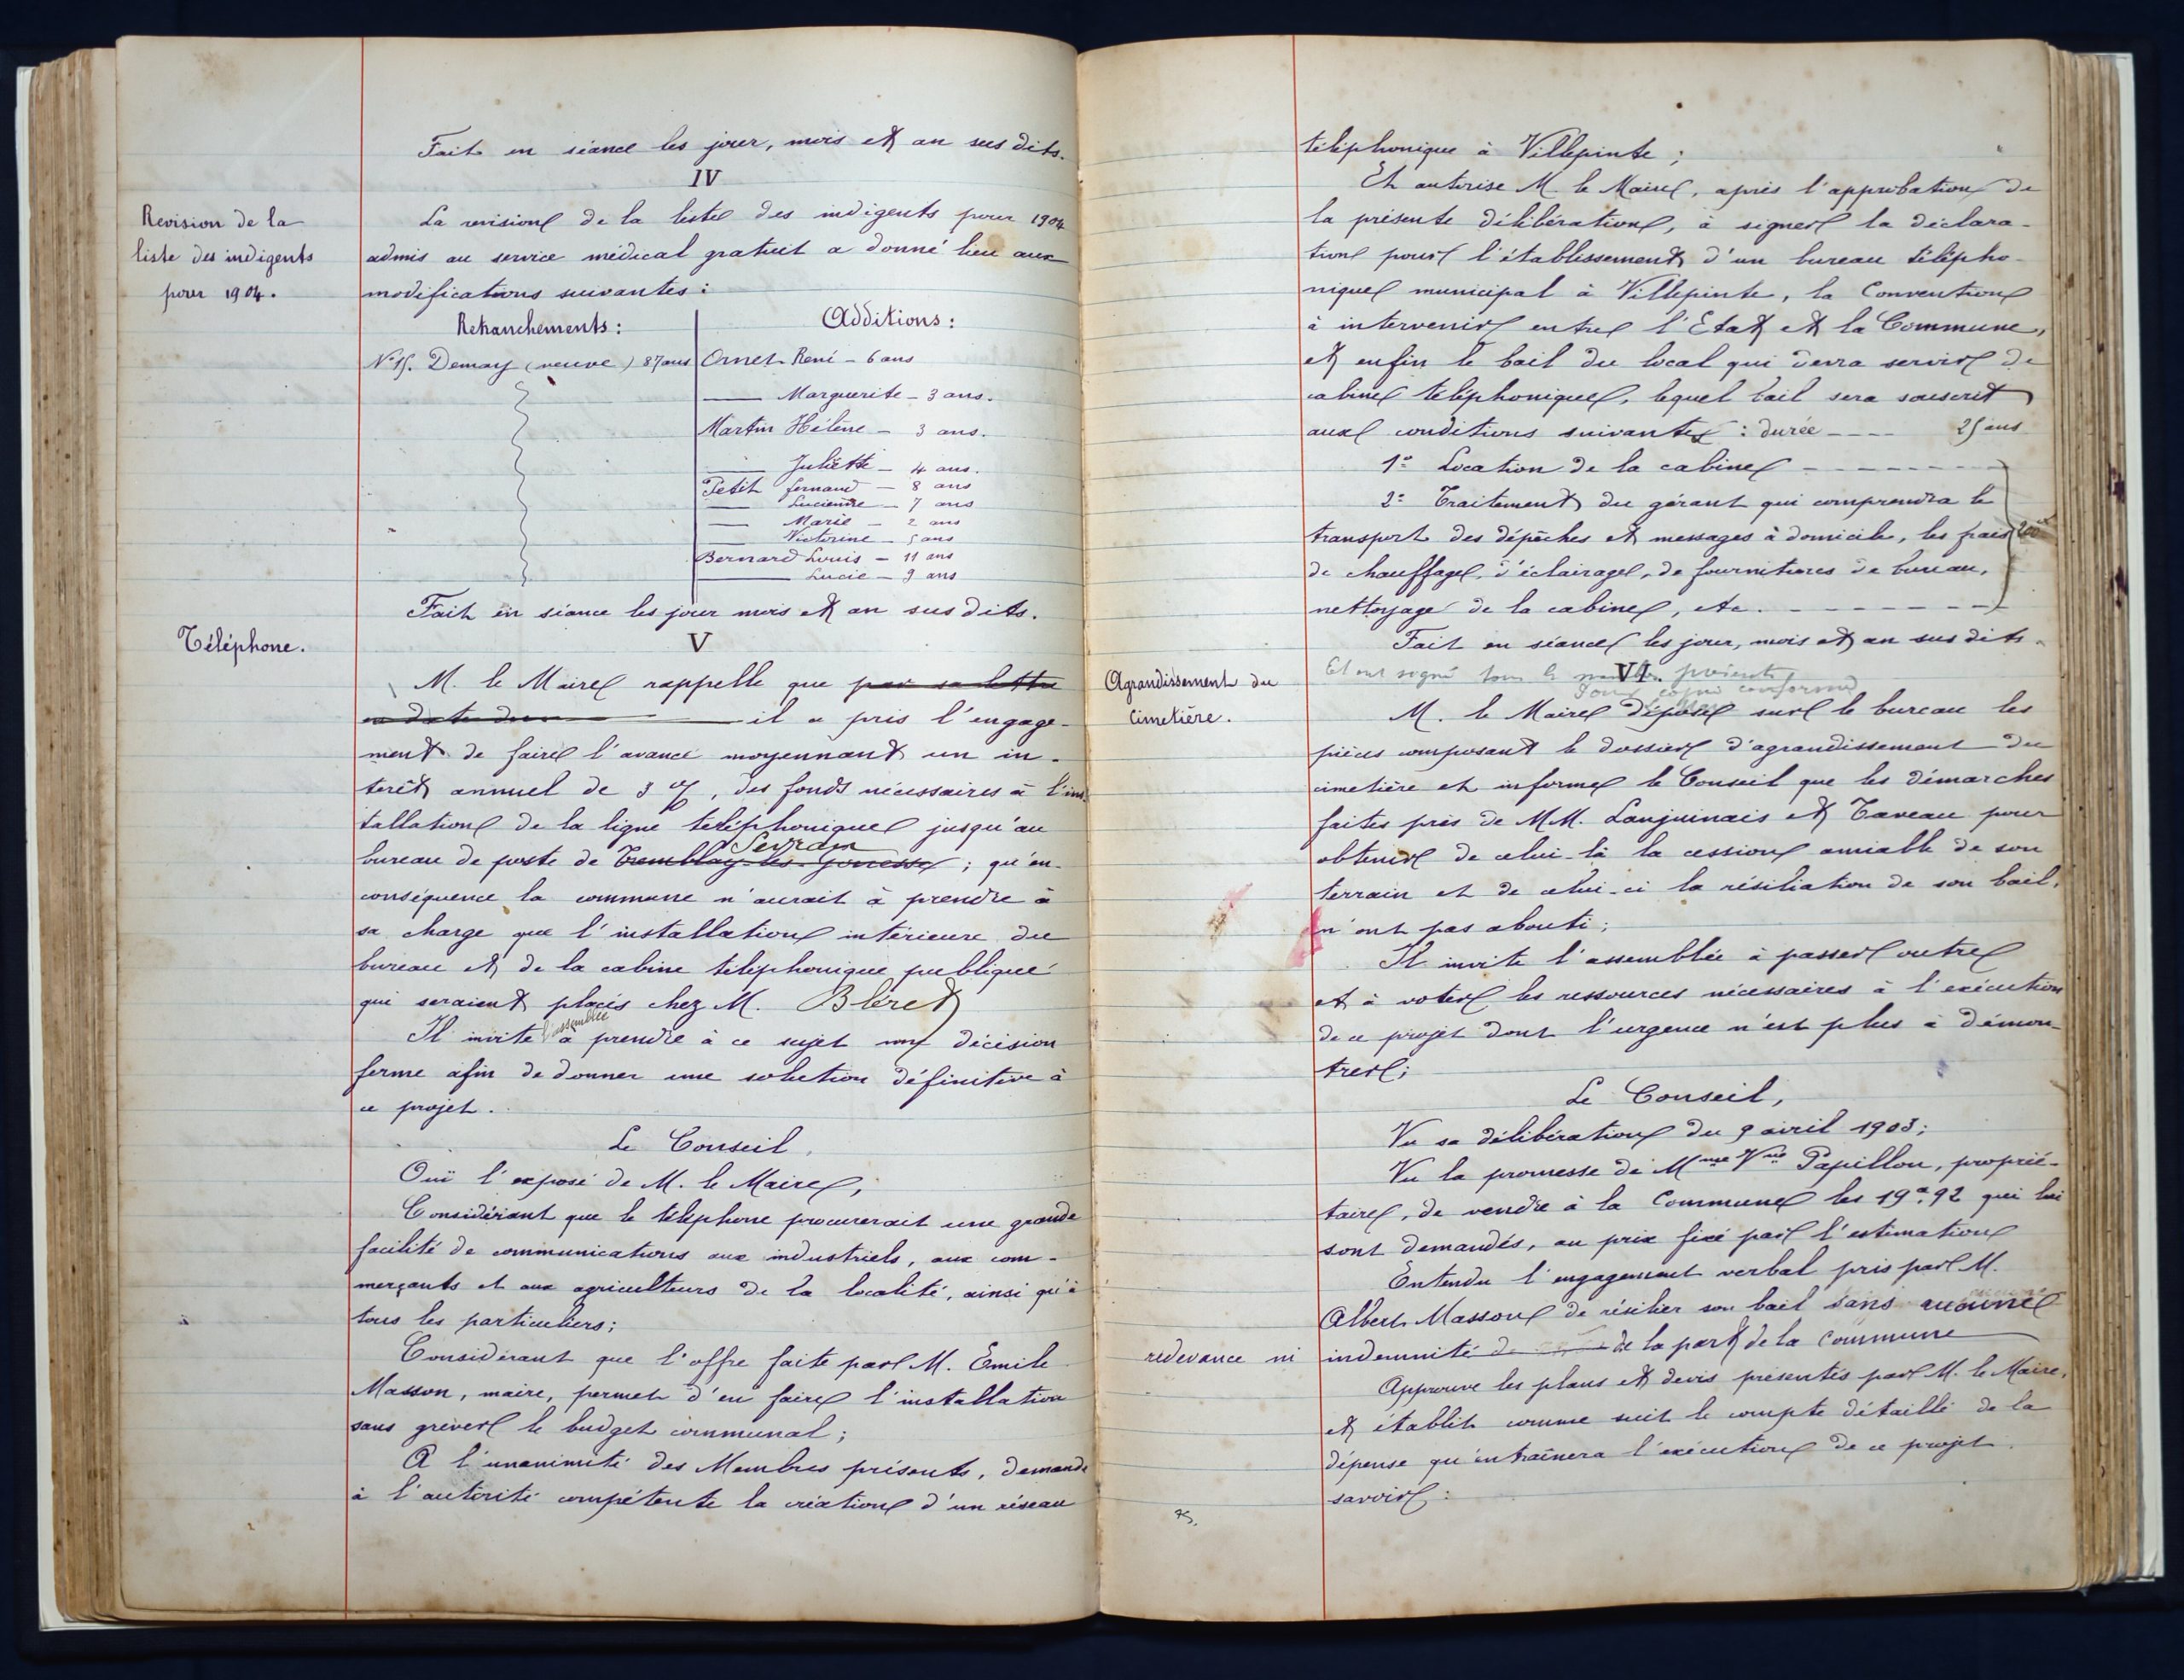 Fait en séance les jour, mois et an susdits.
IV
Revision de la
liste des indigents
pour 1904.
La revision de la liste des indigents pour 1904
admis au service médical gratuit a donné lieu aux
modifications suivantes :
Retranchements :
Additions :
N° 15. Demay (veuve) 87 ans
Ornet René - 6 ans
—— Marguerite - 3 ans.
Martin Hélène - 3 ans.
—— Juliette - 4 ans.
Petit fernand - 8 ans
—— Lucienne - 7 ans
—— Marie - 2 ans
—— Victorine - 5 ans
Bernard Louis - 11 ans
—— Lucie - 9 ans
Fait en séance les jour mois et an susdits.
V
Téléphone.
M. le Maire rappelle que par sa lettre
en date du —— il a pris l'engage-
ment de faire l'avance moyennant un in-
terêt annuel de 3 %, des fonds nécessaires à l'ins-
tallation de la ligne teléphonique jusqu'au
Sevran
bureau de poste de Tremblay-les-gonesse ; qu'en
conséquence la commune n'aurait à prendre à
sa charge que l'installation intérieure du
bureau et de la cabine téléphonique publique
qui seraient placés chez M. Bléret
l'assemblée
Il invite à prendre à ce sujet une décision
ferme afin de donner une solution définitive à
ce projet.
Le Conseil,
Ouï l'exposé de M. le Maire,
Considérant que le téléphone procurerait une grande
facilité de communications aux industriels, aux com-
merçants et aux agriculteurs de la localité, ainsi qu'à
tous les particuliers ;
Considérant que l'offre faite par M. Emile
Masson, maire, permet d'en faire l'installation
sans grever le budget communal ;
A l'unanimité des Membres présents, demande
à l'autorité compétente la création d'un réseau
téléphonique à Villepinte ;
Et autorise M. le Maire, après l'approbation de
la présente délibération, à signer la déclara-
tion pour l'établissement d'un bureau télépho-
nique municipal à Villepinte, la Convention
à intervenir entre l'Etat et la Commune,
et enfin le bail du local qui devra servir de
cabine téléphonique, lequel bail sera souscrit
aux conditions suivantes : durée ---- 25 ans
1° Location de la cabine -------
2° Traitement du gérant qui comprendra le
transport des dépêches et messages à domicile, les frais 200
de chauffage, d'éclairage, de fournitures de bureau,
nettoyage de la cabine, etc. -------
Fait en séance les jour, mois et an susdits.
Et ont signé tous les membres présents
VI.
Pour copie conforme
Agrandissement du
Cimetière.
M. le Maire dépose sur le bureau les
pièces composant le dossier d'agrandissement du
cimetière et informe le Conseil que les démarches
faites près de MM. Lanjuinais et Taveau pour
obtenir de celui-là la cession amiable de son
terrain et de celui-ci la résiliation de son bail,
n'ont pas abouti ;
Il invite l'assemblée à passer outre
et à voter les ressources nécessaires à l'exécution
de ce projet dont l'urgence n'est plus à démon-
trer ;
Le Conseil,
Vu sa délibération du 9 avril 1903 ;
Vu la promesse de Mme Vve Papillon, proprié-
taire, de vendre à la Commune les 19a,92 qui lui
sont demandés, au prix fixé par l'estimation
Entendu l'engagement verbal pris par M.
Albert Masson de résilier son bail sans aucune
redevance ni
indemnité de la part de la Commune
Approuve les plans et devis présentés par M. le Maire,
et établit comme suit le compte détaillé de la
dépense qu'entraînera l'exécution de ce projet.
savoir :